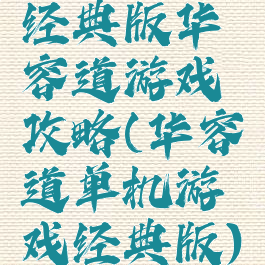 经典版华
容道游戏
攻略(华容
道单机游
戏经典版)